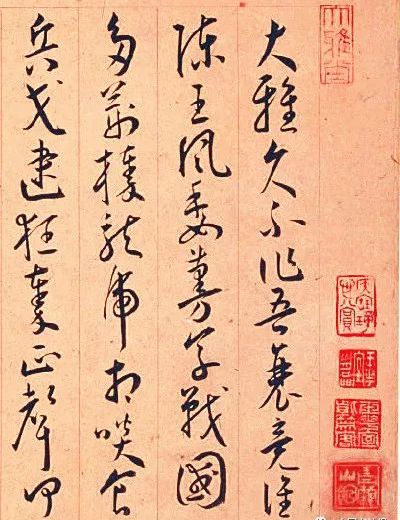 大雅久不作吾衰竟誰
陳王風委蔓草戰國
多荆榛龍虎相啖食
兵戈逮狂秦正聲何